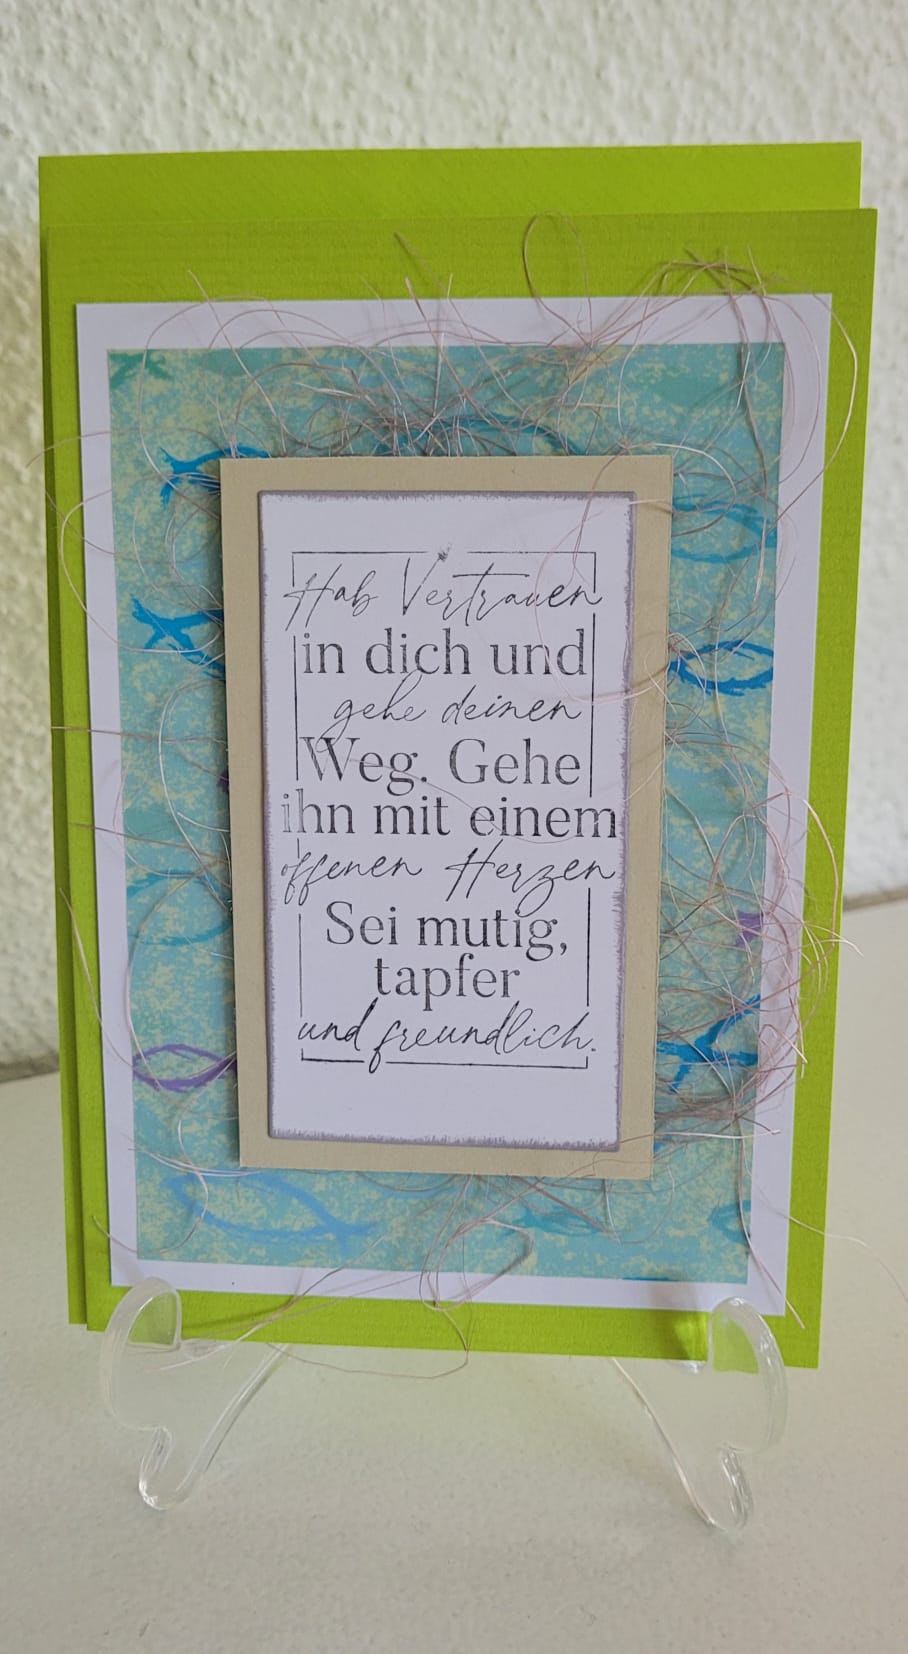 Hab Vertrauen
in dich und
gehe deinen
Weg. Gehe
ihn mit einem
offenen Herzen
Sei mutig,
tapfer
und freundlich.